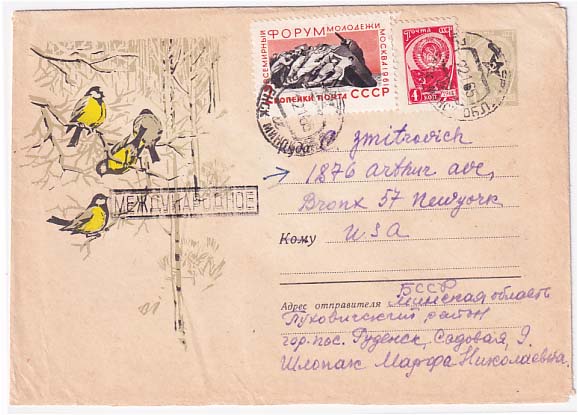 ВСЕМИРНЫЙ
ФОРУМ МОЛОДЕЖИ
МОСКВА 1961
КОПЕЙКИ ПОЧТА СССР
ПОЧТА СССР
4
КОП
Куда
zmitrovich
1876 Arthur ave,
Bronx 57 Newyork
МЕЖДУНАРОДНОЕ
Кому
USA
БССР
Адрес отправителя Минская область
Пуховичский район
гор. пос. Руденск, Садовая, 9.
Шлопак Марфа Николаевна.